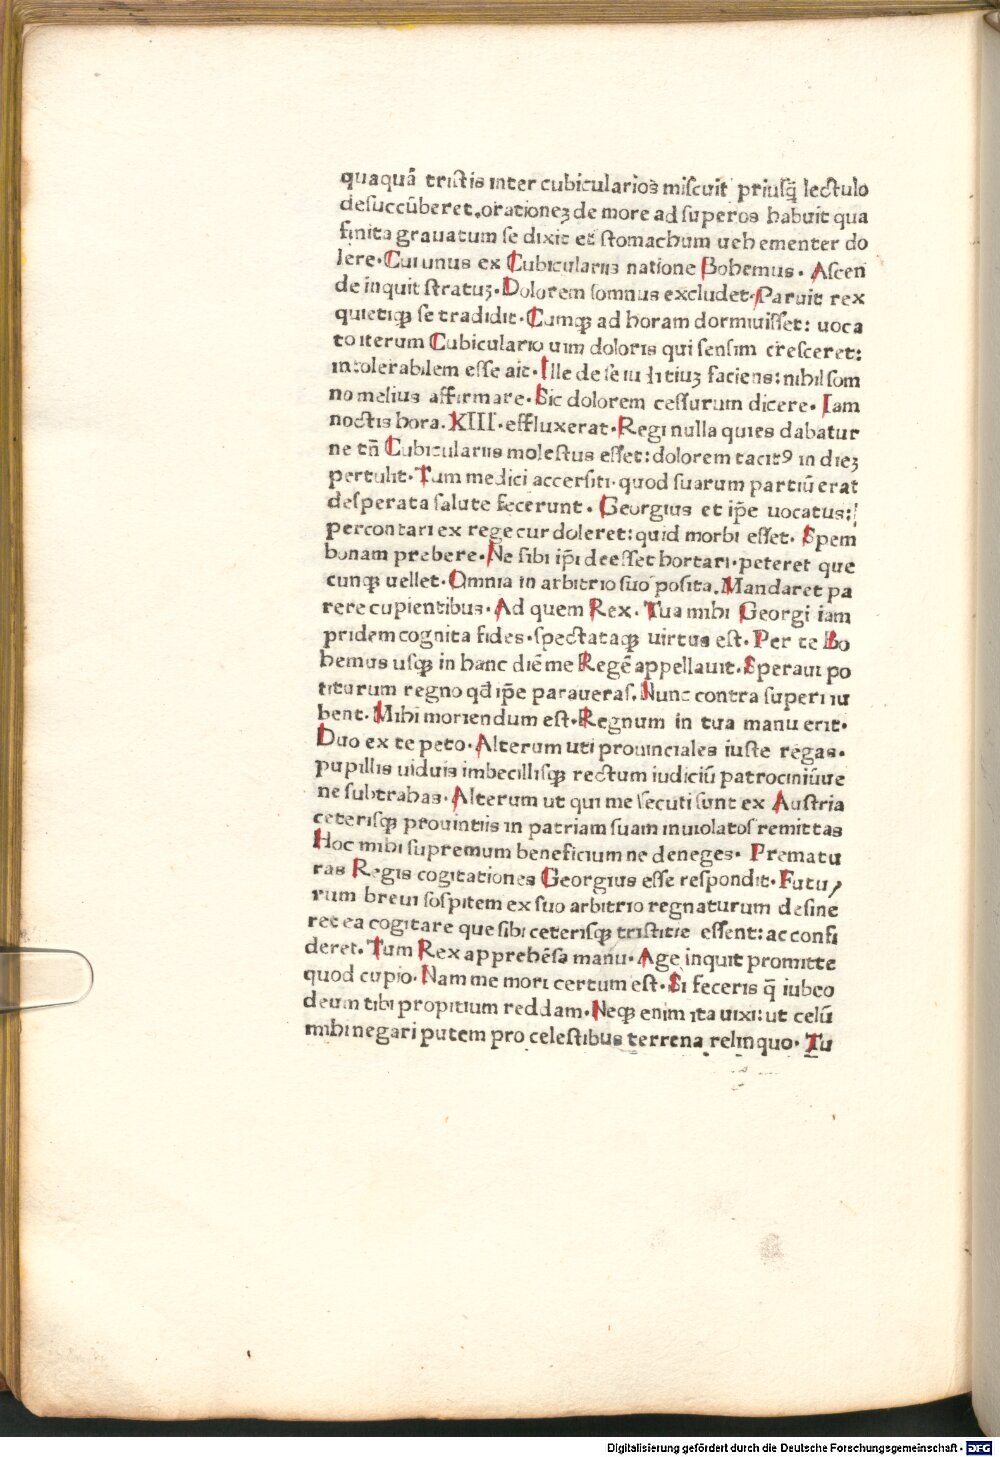 quaquā tristis inter cubicularios miscuit priusq̄ lectulo
desuccūberet.orationeꝫ de more ad superos habuit qua
finita grauatum se dixit et stomachum uehementer do
lere·Cui unus ex Cubiculariis natione Bohemus· Ascen
de inquit stratuꝫ·Dolorem somnus excludet·Paruit rex
quietiqꝫ se tradidit·Cumqꝫ ad horam dormiuisset: uoca
to iterum Cubiculario uim doloris qui sensim cresceret:
intolerabilem esse ait·Ille de se iu diciuꝫ faciens:nihil som
no melius affirmare·Sic dolorem cessurum dicere· Iam
noctis hora.XIII·effluxerat·Regi nulla quies dabatur
ne tn̄ Cubiculariis molestus esset:dolorem tacitꝰ in dieꝫ
pertulit·Tum medici accersiti·quod suarum partiū erat
desperata salute fecerunt· Georgius et ip̄e uocatus:
percontari ex rege cur doleret:quid morbi esset· Spem
bonam prebere·Ne sibi ip̄i deesset hortari·peteret que
cunqꝫ uellet·Omnia in arbitrio suo posita.Mandaret pa
rere cupientibus·Ad quem Rex·Tua mihi Georgi iam
pridem cognita fides·spectataqꝫ uirtus est·Per te Bo
hemus usqꝫ in hanc diē me Regē appellauit·Speraui po
titurum regno qd̄ ip̄e paraueras.Nunc contra superi iu
bent·Mihi moriendum est·Regnum in tua manu erit·
Duo ex te peto·Alterum uti prouinciales iuste regas·
pupillis uiduis imbecillisqꝫ rectum iudiciū patrociniūue
ne subtrahas·Alterum ut qui me secuti sunt ex Austria
ceterisqꝫ prouintiis in patriam suam inuiolatos remittas
Hoc mihi supremum beneficium ne deneges· Prematu
ras Regis cogitationes Georgius esse respondit·Futu/
rum breui sospitem ex suo arbitrio regnaturum desine
ret ea cogitare que sibi ceterisqꝫ tristitie essent:ac confi
deret·Tum Rex apprehēsa manu·Age inquit promitte
quod cupio·Nam me mori certum est·Si feceris q̄ iubeo
deum tibi propitium reddam·Neqꝫ enim ita uixi:ut celū
mihi negari putem pro celestibus terrena relinquo· Tu
Digitalisierung gefördert durch die Deutsche Forschungsgemeinschaft - DFG